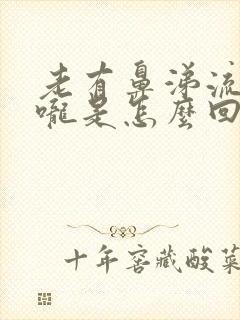 老有鼻涕流
嚨是怎麼回
十年窖藏酸菜